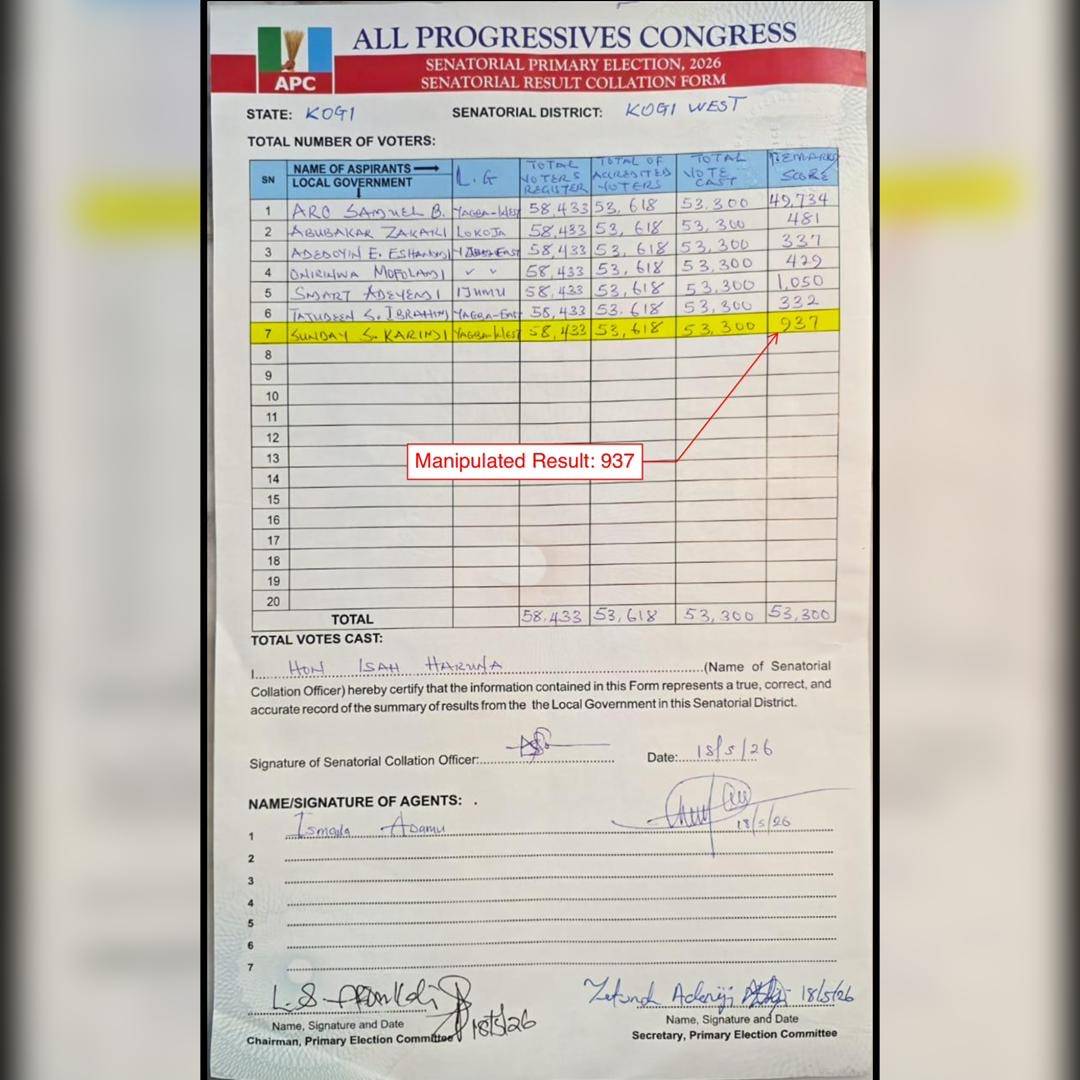 ALL PROGRESSIVES CONGRESS
APC
SENATORIAL PRIMARY ELECTION, 2026
SENATORIAL RESULT COLLATION FORM
STATE: KOGI SENATORIAL DISTRICT: KOGI WEST
TOTAL NUMBER OF VOTERS:
SN NAME OF ASPIRANTS LOCAL GOVERNMENT L.G TOTAL VOTERS REGISTER TOTAL OF ACCREDITED VOTERS TOTAL VOTE CAST REMARKS SCORE
1 ARC SAMUEL B. YAGBA-WEST 58,433 53,618 53,300 49,734
2 ABUBAKAR LOKOJA 58,433 53,618 53,300 481
3 ADEDOYIN E. 58,433 53,618 53,300 337
4 58,433 53,618 53,300 429
5 SMART ADEYEMI IJUMU 58,433 53,618 53,300 1,050
6 TAJUDEEN S. IBRAHIM YAGBA-EAST 58,433 53,618 53,300 332
7 SUNDAY S. KARIMI YAGBA-WEST 58,433 53,618 53,300 937
8
9
10
11
12
13
Manipulated Result: 937
14
15
16
17
18
19
20
TOTAL 58,433 53,618 53,300 53,300
TOTAL VOTES CAST:
I HON ISAH HARUNA (Name of Senatorial
Collation Officer) hereby certify that the information contained in this Form represents a true, correct, and
accurate record of the summary of results from the the Local Government in this Senatorial District.
Signature of Senatorial Collation Officer: Date: 18/5/26
NAME/SIGNATURE OF AGENTS:
1 Ismaila Adamu 18/5/26
2
3
4
5
6
7
18/5/26 18/5/26
Name, Signature and Date Name, Signature and Date
Chairman, Primary Election Committee Secretary, Primary Election Committee